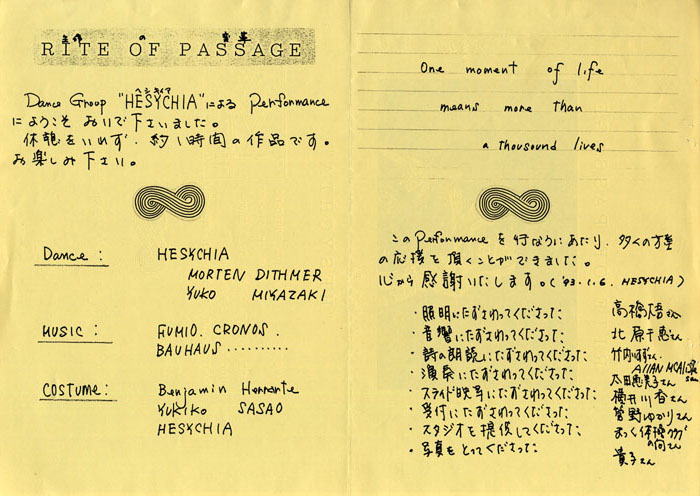 RITE OF PASSAGE
ヘシカイア
Dance Group "HESYCHIA"による Performance
にようこそ おいで下さいました。
休憩をいれず、約1時間の作品です。
お楽しみ下さい。
Dance : HESYCHIA
MORTEN DITHMER
YUKO MIYAZAKI
MUSIC : FUMIO. CRONOS.
BAUHAUS ..........
COSTUME : Benjamin
YUKIKO SASAO
HESYCHIA
One moment of life
means more than
a thousound lives
このPerformance を行なうにあたり、多くの方々
の応援を頂くことができました。
心から 感謝いたします。('93.1.6. HESYCHIA)
・照明にたずさわってくださった 高橋悟さん
・音響にたずさわってくださった 北原千恵さん
・詩の朗読にたずさわってくださった 竹内いずみさん
・演奏にたずさわってくださった ALLAN
太田恵美子さん
・スライド映写にたずさわってくださった 櫻井川香さん
・受付にたずさわってくださった 菅野ゆかりさん
・スタジオを提供してくださった まっく体操クラブ
の向さん
・写真をとってくださった 貴子さん